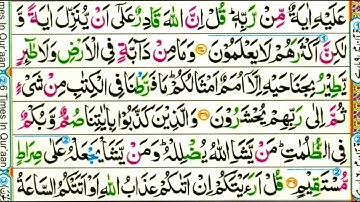 عَلَيْهِ اٰيَةٌ مِّنْ رَّبِّهٖ ؕ قُلْ اِنَّ اللّٰهَ قَادِرٌ عَلٰۤى اَنْ يُّنَزِّلَ اٰيَةً وَّ
لٰكِنَّ اَكْثَرَهُمْ لَا يَعْلَمُوْنَ وَمَا مِنْ دَآبَّةٍ فِى الْاَرْضِ وَلَا طٰٓئِرٍ
يَّطِيْرُ بِجَنَاحَيْهِ اِلَّاۤ اُمَمٌ اَمْثَالُكُمْ ؕ مَا فَرَّطْنَا فِى الْكِتٰبِ مِنْ شَىْءٍ
ثُمَّ اِلٰى رَبِّهِمْ يُحْشَرُوْنَ وَالَّذِيْنَ كَذَّبُوْا بِاٰيٰتِنَا صُمٌّ وَّبُكْمٌ
فِى الظُّلُمٰتِ ؕ مَنْ يَّشَاِ اللّٰهُ يُضْلِلْهُ ؕ وَمَنْ يَّشَاْ يَجْعَلْهُ عَلٰى صِرَاطٍ
مُّسْتَقِيْمٍ قُلْ اَرَءَيْتَكُمْ اِنْ اَتٰىكُمْ عَذَابُ اللّٰهِ اَوْ اَتَتْكُمُ السَّاعَةُ
26 Times In Qur'aan